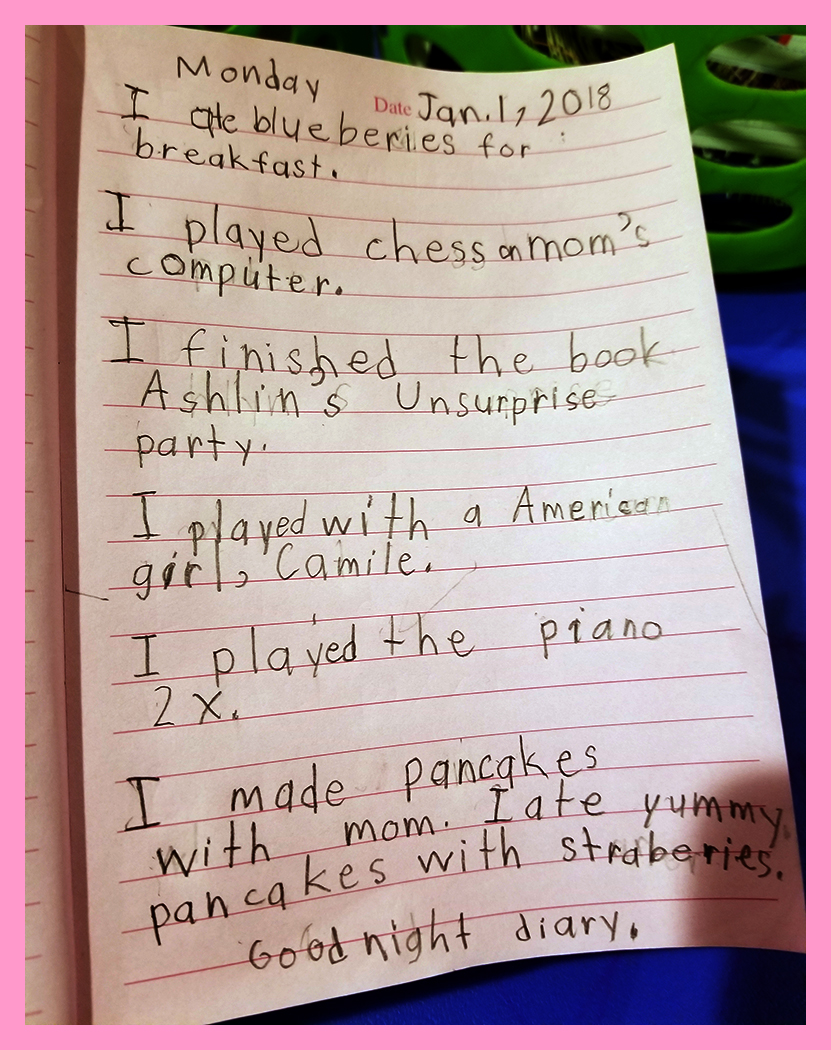 Monday
Date Jan. 1, 2018
I ate blueberies for
breakfast.
I played chess on mom's
computer.
I finished the book
Ashlin's Unsurprise
party.
I played with a American
girl, Camile.
I played the piano
2x.
I made pancakes
with mom. I ate yummy
pancakes with straberies.
Good night diary.